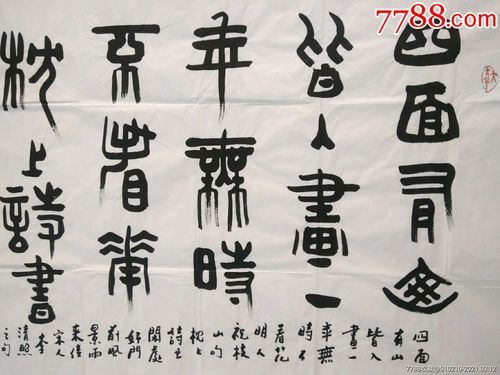 7788.com
四面有山
皆入畫一
年無時
不看花
枕上詩書
四面
有山
皆入
畫一
年無
時不
看花
明人
祝枝
山句
枕上
詩書
閑處
好門
前風
景雨
来佳
宋人
李
清照
之句